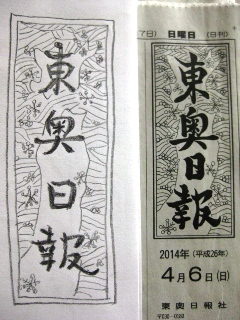 東奥日報
7日) 日曜日 (日刊)
東奥日報
2014年 (平成26年)
4月6日(日)
東奥日報社
〒030-0180